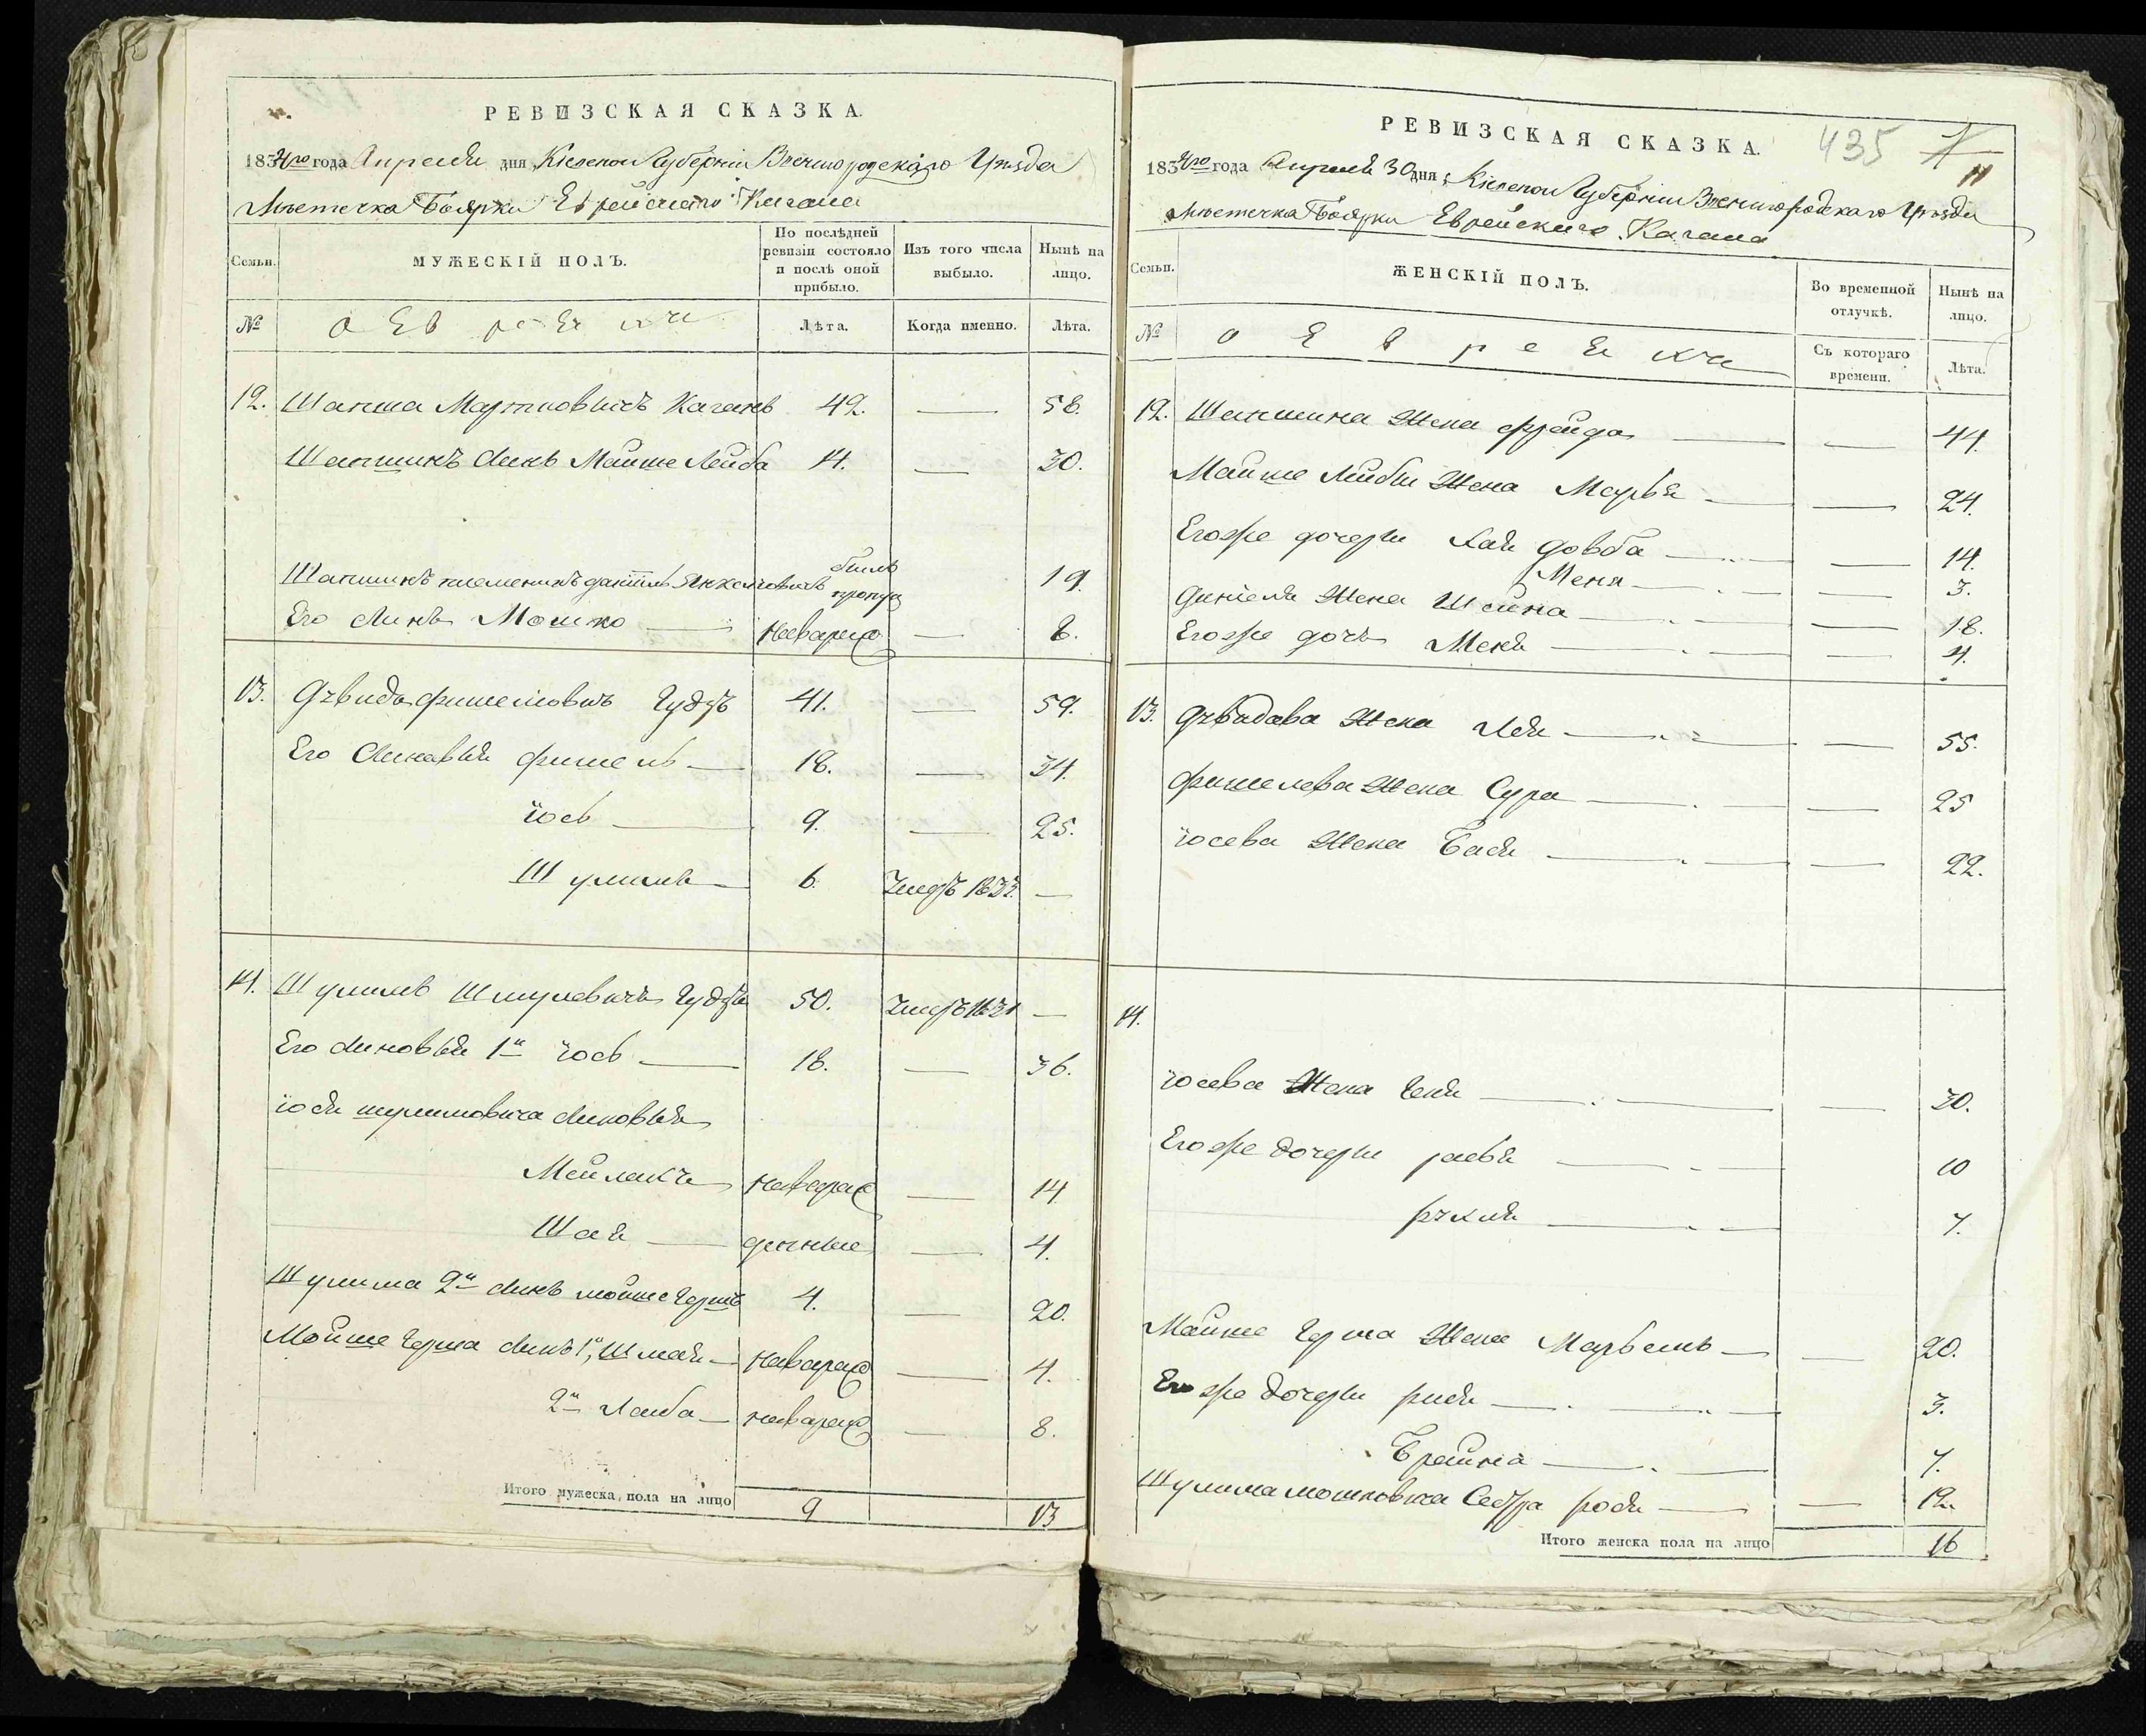 РЕВИЗСКАЯ СКАЗКА.
1834го года Апреля дня, Кіевской Губерніи Звенигородскаго Уѣзда
Мѣстечка Боярки Еврейскаго Кагала
Семьи.
МУЖЕСКІЙ ПОЛЪ.
По послѣдней ревизіи состояло и послѣ оной прибыло.
Изъ того числа выбыло.
Нынѣ на лицо.
№
о Евреяхъ
Лѣта.
Когда именно.
Лѣта.
12. Шапша Мартковичъ Каганъ 42. — 58.
Шапшинъ Сынъ Мойше Лейба 14. — 30.
Шапшинъ племеникъ Даніель Янкелювичъ былъ пропу 19.
Его Сынъ Мошко — Неварев — 8.
13. Дувидъ Фишелювичъ Гудзъ 41. — 59.
Его Сыновья Фишель — 18. — 34.
Іось — 9. — 25.
Шулимъ — 6. Умеръ 1833. —
14. Шулимъ Шмулевичъ Гудзъ 50. Умеръ 1831 —
Его Сыновья 1й Іось — 18. — 36.
Іося Шулимовича Сыновья
Мейлахъ Неварев — 14
Шая — денные — 4.
Шулима 2й Сынъ Мойше Гершъ 4. — 20.
Мойше Герша Сынъ 1й, Шмая — Неварев — 4.
2й Лейба — Неварев — 8.
Итого мужеска пола на лицо 9 13
РЕВИЗСКАЯ СКАЗКА.
435
11
1834го года Апреля 30 дня, Кіевской Губерніи Звенигородскаго Уѣзда
Мѣстечка Боярки Еврейскаго Кагала
Семьи.
ЖЕНСКІЙ ПОЛЪ.
Во временной отлучкѣ.
Нынѣ на лицо.
№
о Евреяхъ
Съ котораго времени.
Лѣта.
12. Шапшина Жена Фрейда — — 44.
Мойше Лейбы Жена Марья — — 24.
Егоже дочери Хая Довба — — 14.
Меня — — 3.
Даніеля Жена Шейна — — 18.
Егоже дочь Меня — — 4.
13. Дувидова Жена Лея — — 55.
Фишелева Жена Сура — — 25
Іосева Жена Бася — — 22.
14.
Іосева Жена Геня — — 30.
Егоже дочери Раевя — 10
Рухля — 7.
Мойше Герша Жена Марьемъ — — 20.
Егоже дочери Рися — 3.
Брайна — 7.
Шулима Мошковича Сестра Рося — — 12.
Итого женска пола на лицо 16